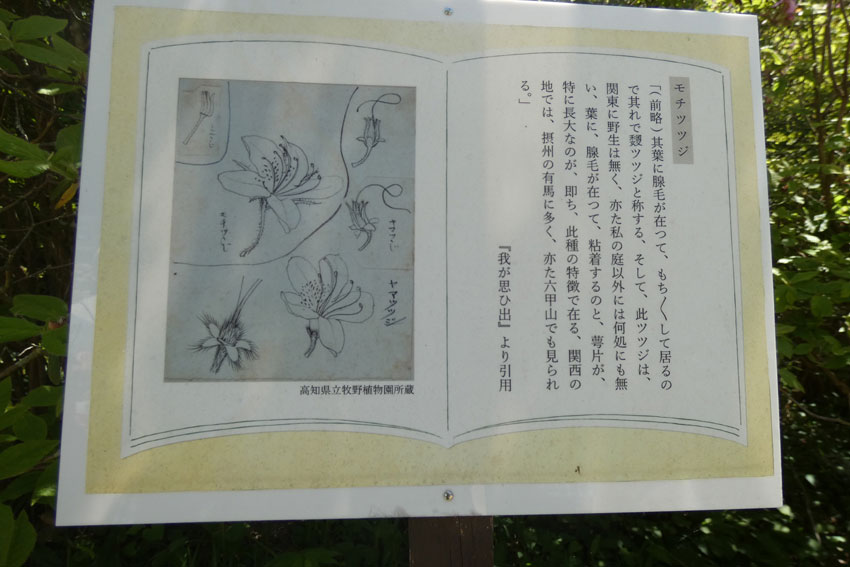 モチツツジ
「(前略)其葉に腺毛が在つて、もち〱して居るの
で其れで黐ツツジと称する、そして、此ツツジは、
関東に野生は無く、亦た私の庭以外には何処にも無
い、葉に、腺毛が在つて、粘着するのと、萼片が、
特に長大なのが、即ち、此種の特徴で在る、関西の
地では、摂州の有馬に多く、亦た六甲山でも見られ
る。」
『我が思ひ出』より引用
モチツツジ
ヤマツツジ
高知県立牧野植物園所蔵